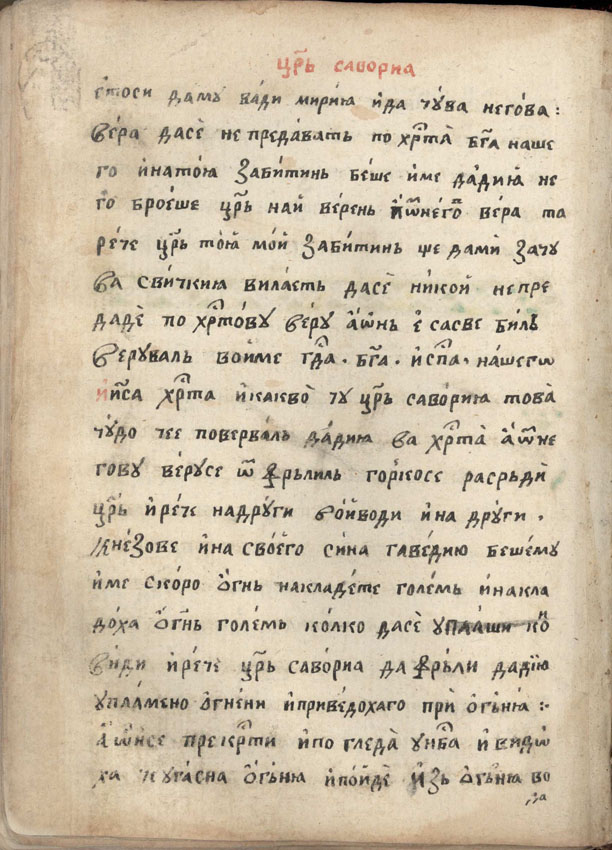 цр҃ь саворна
етоси даму вади мирию и҆да чува негова :
ве́ра дасѐ не преда́вать по хрⷭ҇та̀ бг҃а наше
го и҆нато́ю забитинь беше и҆ме да́дию не
го̀броеше цр҃ь най верень вера та
ре́че цр҃ь то́й мо́й забитинь ще дамѝ зачу
ва сви́чкию вила́еть дасѐ ни́кой непре
дадѐ по хрⷭ҇то́ву веру а҆ѡ҆нь е҆ сасве биль
верувааль во и҆ме гдⷭ҇а · бг҃а · и҆спⷭ҇а · на́шегѡ
і҆и҃са хрⷭ҇та и҆какво̀ чу цр҃ь саворию това
чу́до че повервáль да́дию ва хрⷭ҇та̀ а҆ѡ҆не
гову ве́русе ѿфрьлиль го́ркосе расръдѝ
цр҃ь и҆рече надру́ги во́йводи и҆на други ·
кнезове и҆на своего сина гаведию бешему
и҆ме скоро о҆гнь накладе́те големь и҆накла
до́ха о҆гнь големь ко́лко дасѐ упла́ши кой
ви́ди и҆рече цр҃ь саворна да фрьли дадїю
упла́мено о҆гнени и҆приве́дохаго при̇ о҆гъню :·
а҆ѡ҆нсе прекрⷭ҇ти и҆по гледа̀ унб҃а и҆видѡ
ха че угасна о҆гъню и҆по́йде и҆зь о҆гъню во